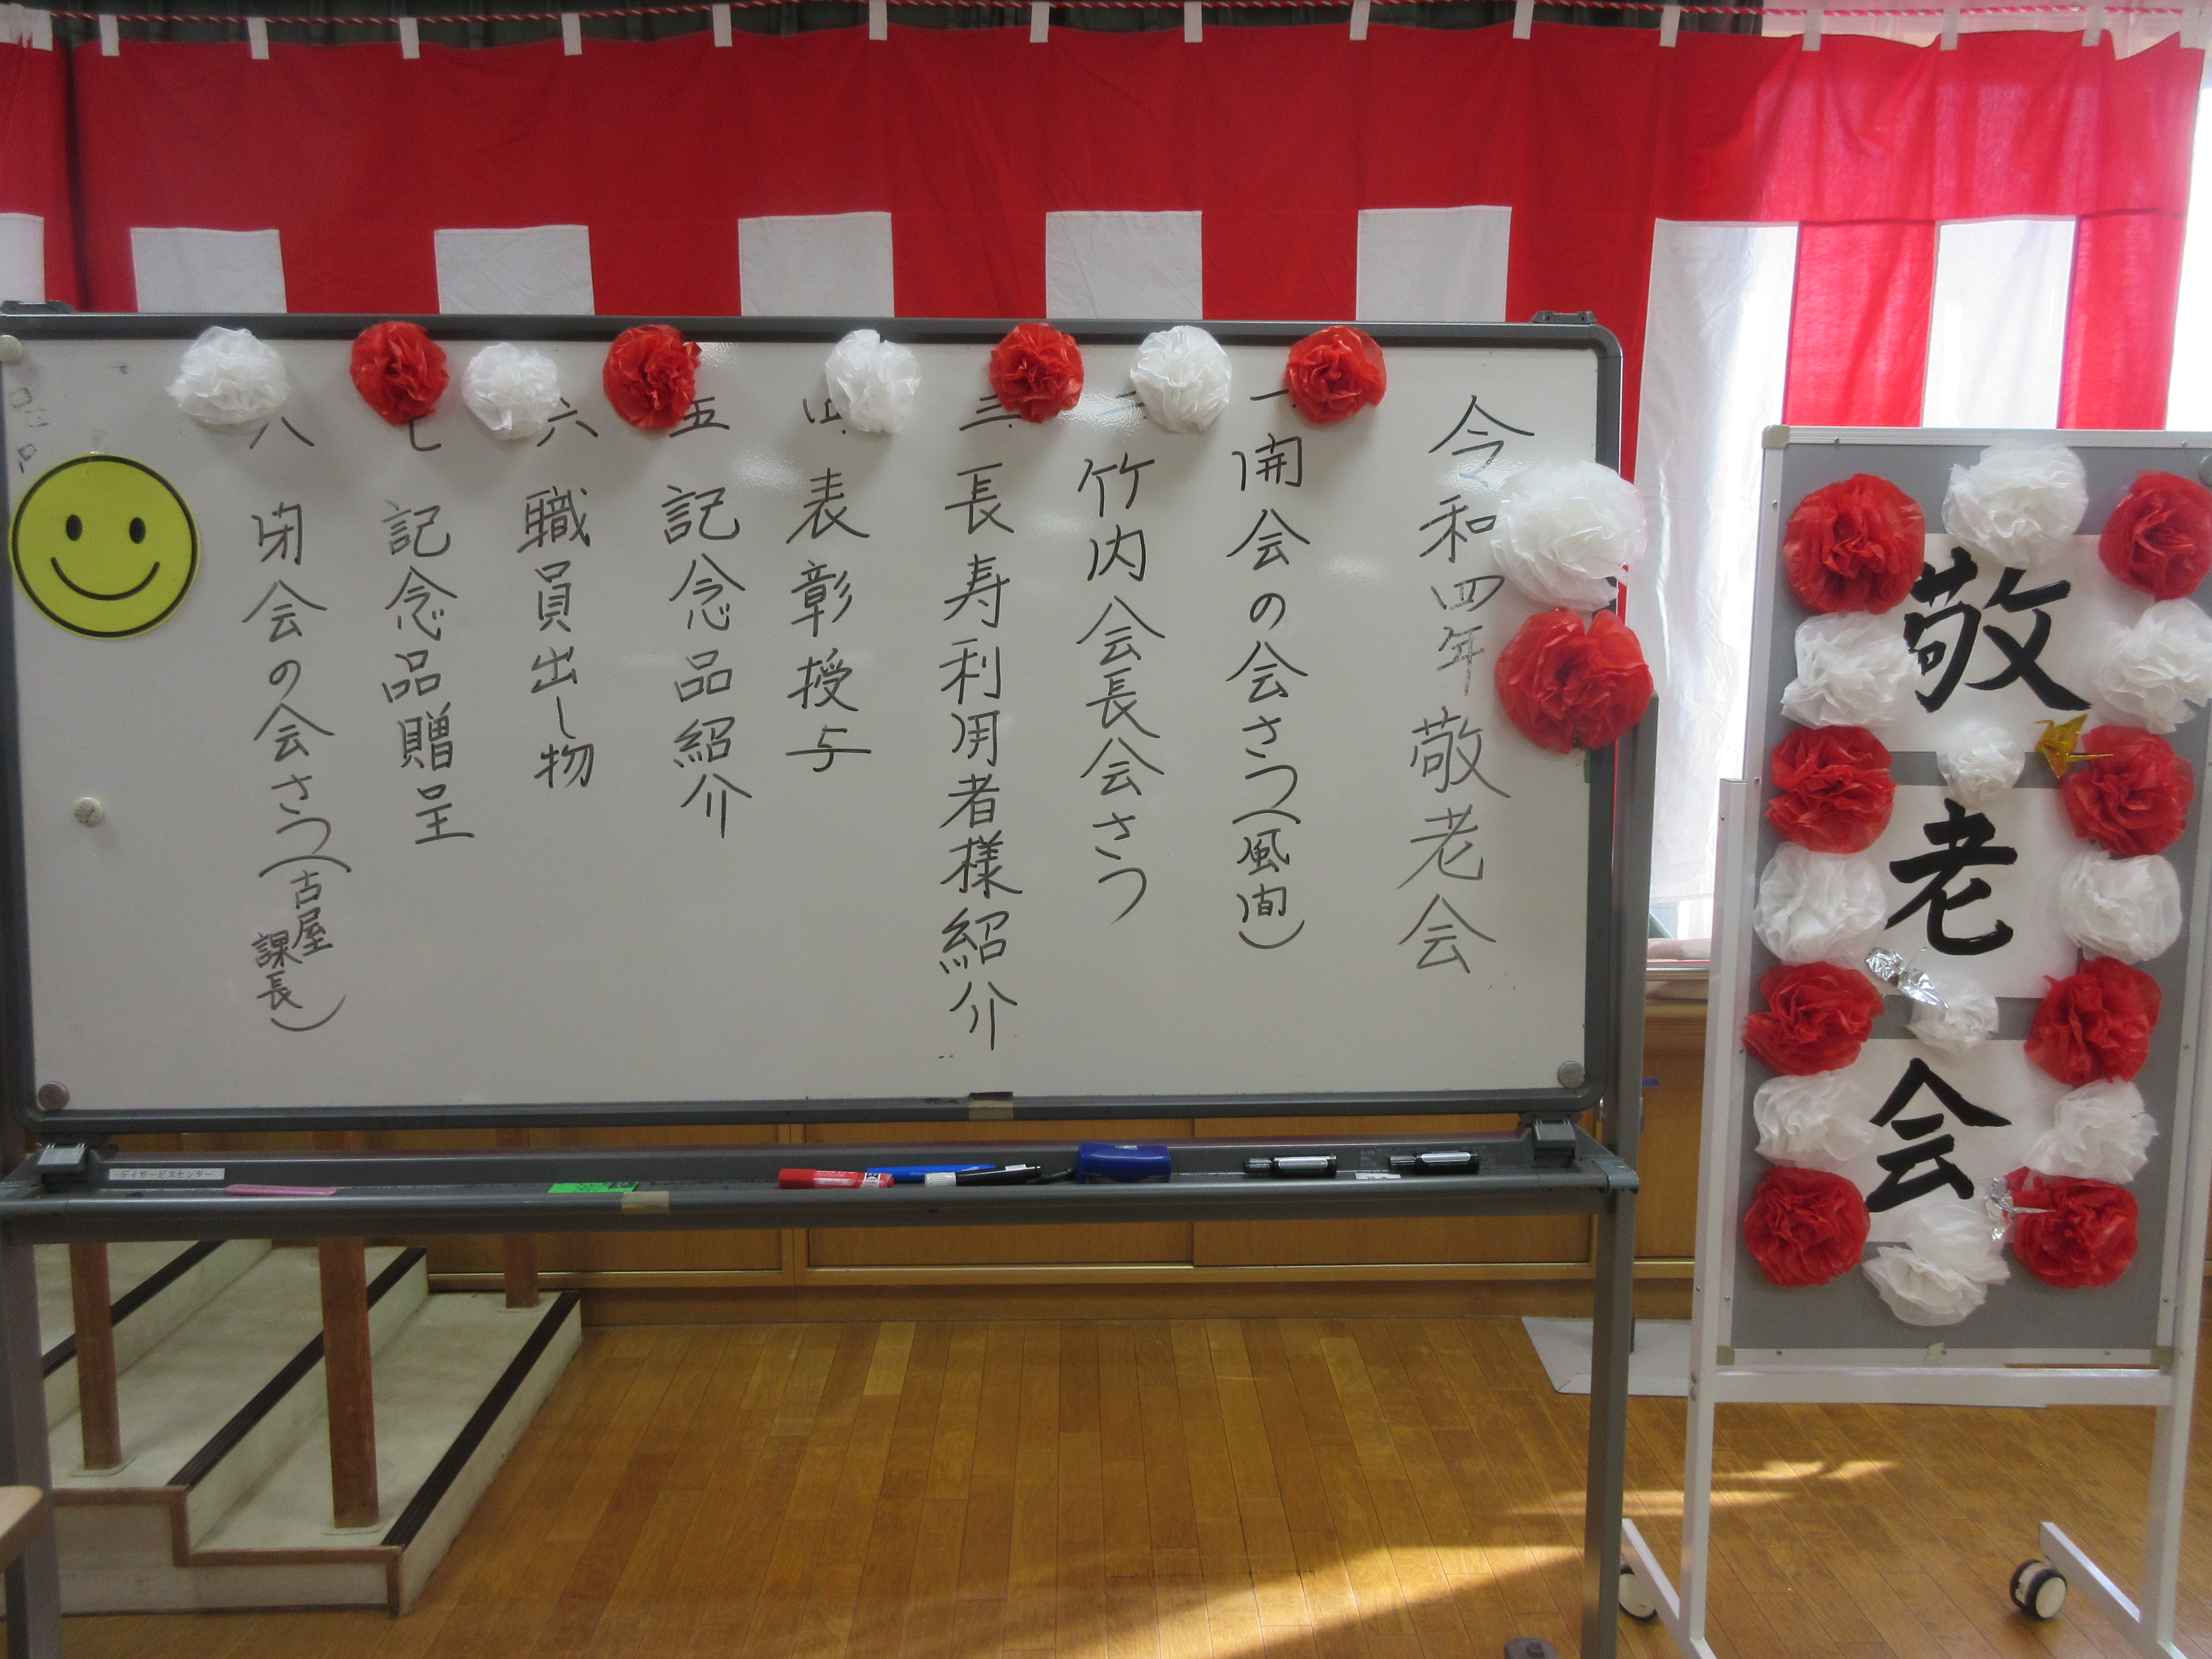 令和四年 敬老会
一 開会の会さつ(風間)
二 竹内会長会さつ
三. 長寿利用者様紹介
四. 表彰授与
五 記念品紹介
六 職員出し物
七 記念品贈呈
八 閉会の会さつ(古屋課長)
敬老会
デイサービスセンター